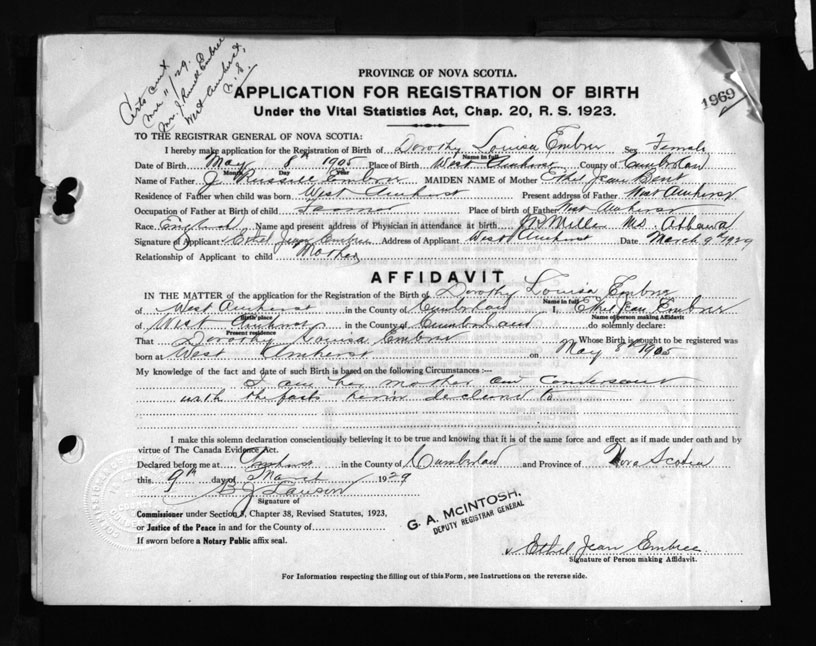 PROVINCE OF NOVA SCOTIA.
APPLICATION FOR REGISTRATION OF BIRTH
Under the Vital Statistics Act, Chap. 20, R. S. 1923.
1969
Mr. J. Russell Embree
West Amherst,
N.S.
TO THE REGISTRAR GENERAL OF NOVA SCOTIA:
I hereby make application for the Registration of Birth of Dorothy Louisa Embree Sex Female
Name in full
Date of Birth May 8th 1905 Place of Birth West Amherst County of Cumberland
Month Day
Name of Father J. Russell Embree MAIDEN NAME of Mother Ethel Jean Bent
Residence of Father when child was born West Amherst Present address of Father West Amherst
Occupation of Father at Birth of child Farmer Place of birth of Father West Amherst
Race English Name and present address of Physician in attendance at birth Mills M.D.
Signature of Applicant Ethel Jean Embree Address of Applicant West Amherst Date March 9th 1929
Relationship of Applicant to child Mother
AFFIDAVIT
IN THE MATTER of the application for the Registration of the Birth of Dorothy Louisa Embree
Name in full
of West Amherst in the County of Cumberland I, Ethel Jean Embree
Birth place Name of person making Affidavit
of West Amherst in the County of Cumberland do solemnly declare:
Present residence
That Dorothy Louisa Embree Whose Birth is sought to be registered was
born at West Amherst on May 8th 1905
My knowledge of the fact and date of such Birth is based on the following Circumstances :—
I am her mother and conversant
with the facts herein declared to
I make this solemn declaration conscientiously believing it to be true and knowing that it is of the same force and effect as if made under oath and by
virtue of The Canada Evidence Act.
Declared before me at Amherst in the County of Cumberland and Province of Nova Scotia
this 9th day of March 1929
Lawson
Signature of
Commissioner under Section 3, Chapter 38, Revised Statutes, 1923,
or Justice of the Peace in and for the County of
If sworn before a Notary Public affix seal.
G. A. McINTOSH,
DEPUTY REGISTRAR GENERAL
Ethel Jean Embree
Signature of Person making Affidavit.
For Information respecting the filling out of this Form, see Instructions on the reverse side.